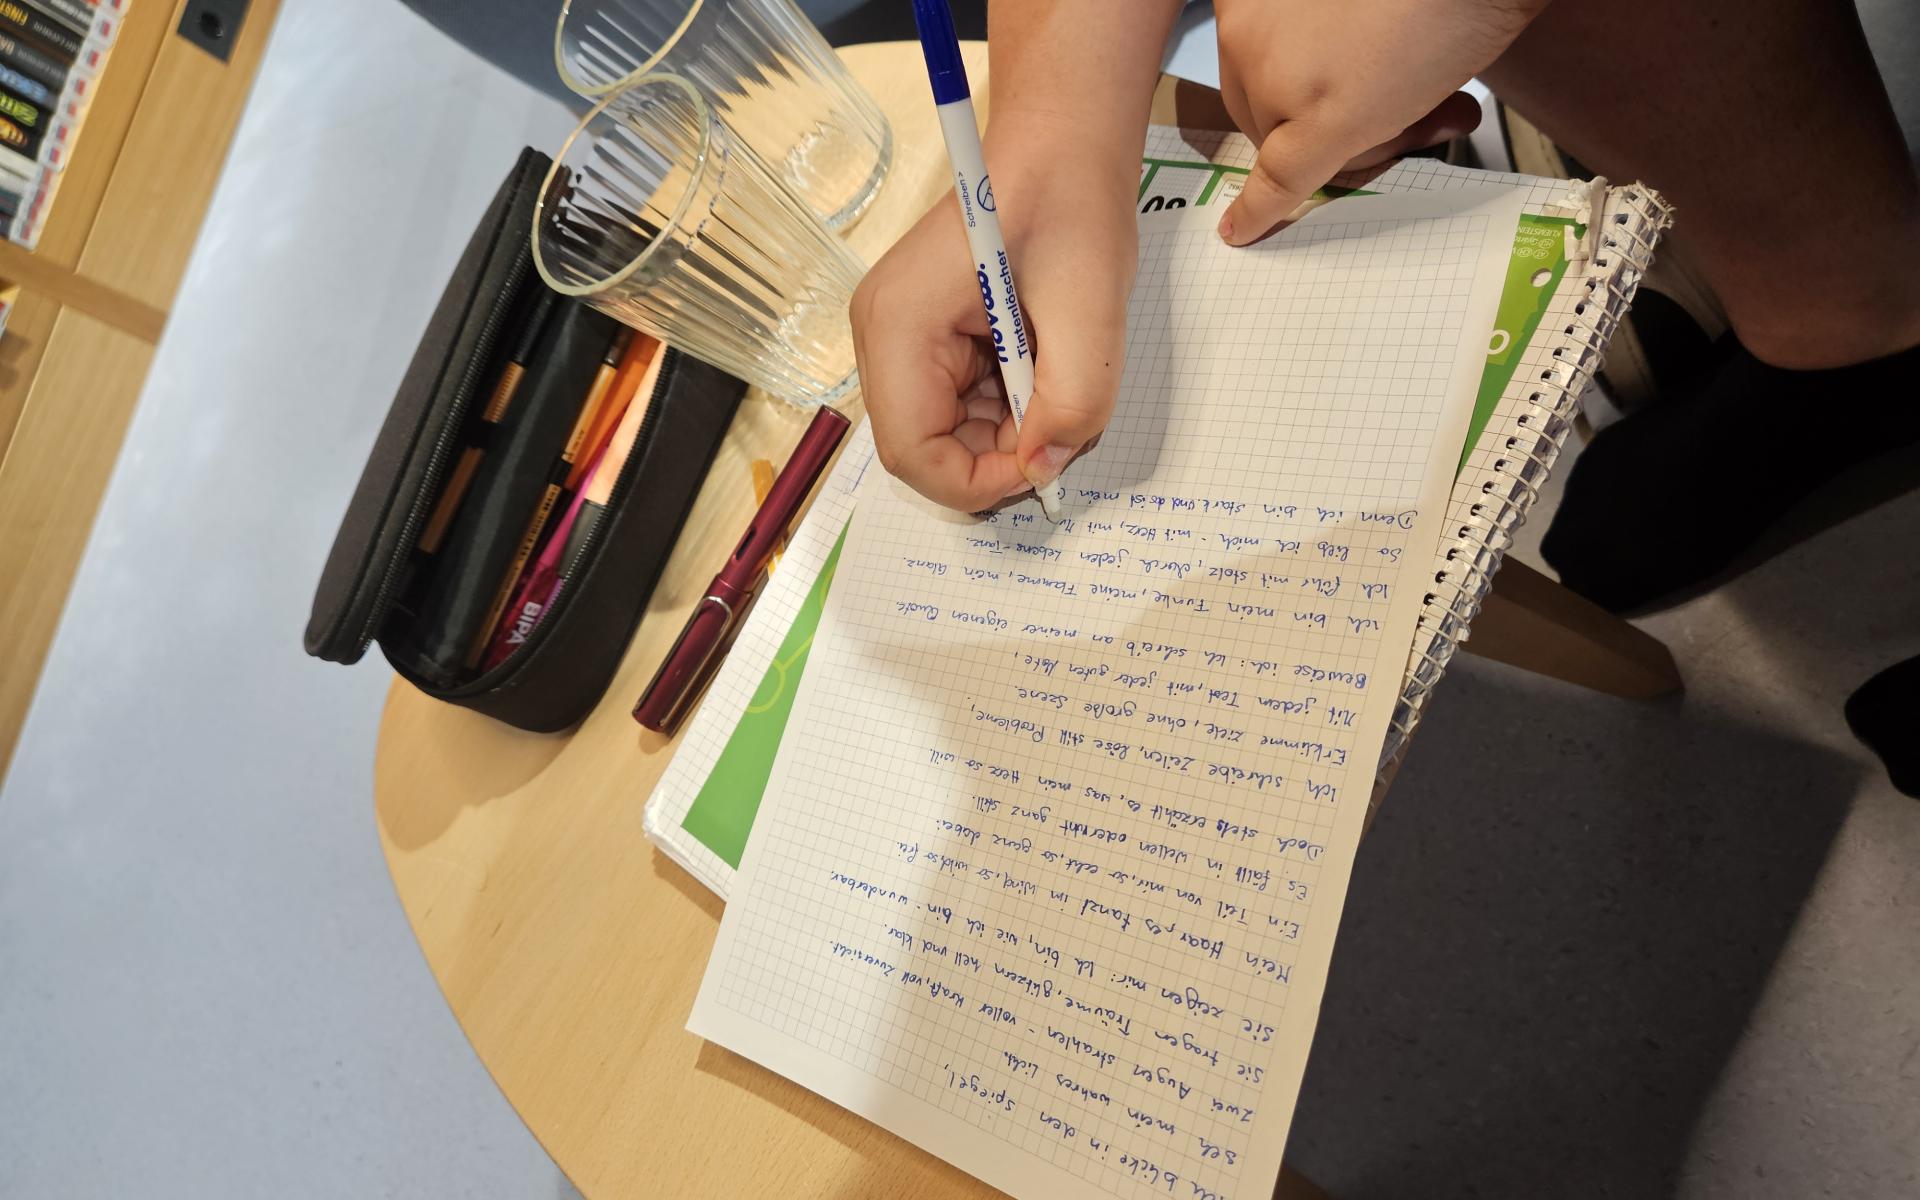 Ich blicke in den Spiegel,
seh mein wahres Licht.
Zwei Augen strahlen - voller Kraft, voll Zuversicht.
Sie tragen Träume, glitzern hell und klar.
Sie zeigen mir: Ich bin, wie ich bin - wunderbar.
Mein Haar, es tanzt im Wind, so wild, so frei.
Ein Teil von mir, so echt, so ganz dabei.
Es fällt in Wellen oder ruht ganz still.
Doch stets erzählt es, was mein Herz so will.
Ich schreibe Zeilen, löse still Probleme,
Erklimme Ziele, ohne große Szene.
Mit jedem Test, mit jeder guten Note,
Beweise ich: Ich schreib an meiner eigenen Quote.
Ich bin mein Funke, meine Flamme, mein Glanz.
Ich führ mit Stolz, durch jeden Lebens-Tanz.
So lieb ich mich - mit Herz, mit mit
Denn ich bin stark. Und das ist mein
Schreiben >
novooo.
Tintenlöscher
BIPA
80